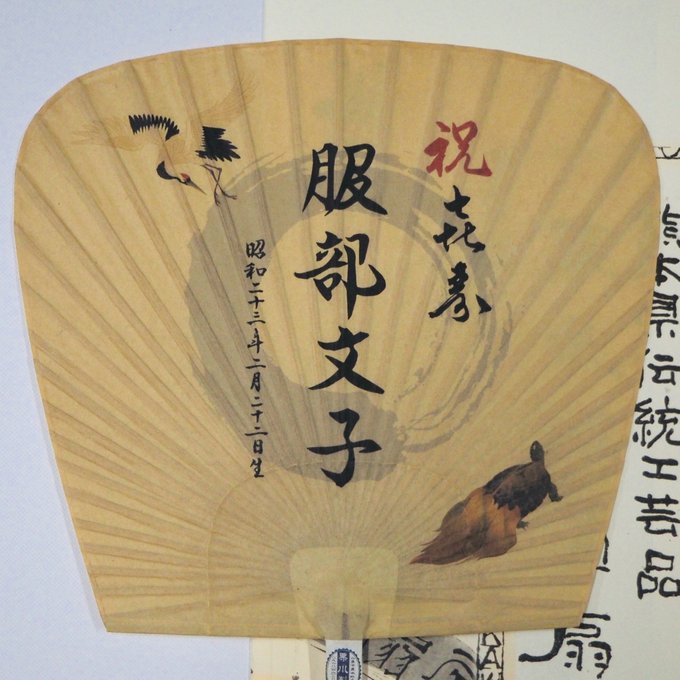 祝
㐂寿
服部文子
昭和二十三年二月二十二日生
県伝統工芸品
扇
栗川